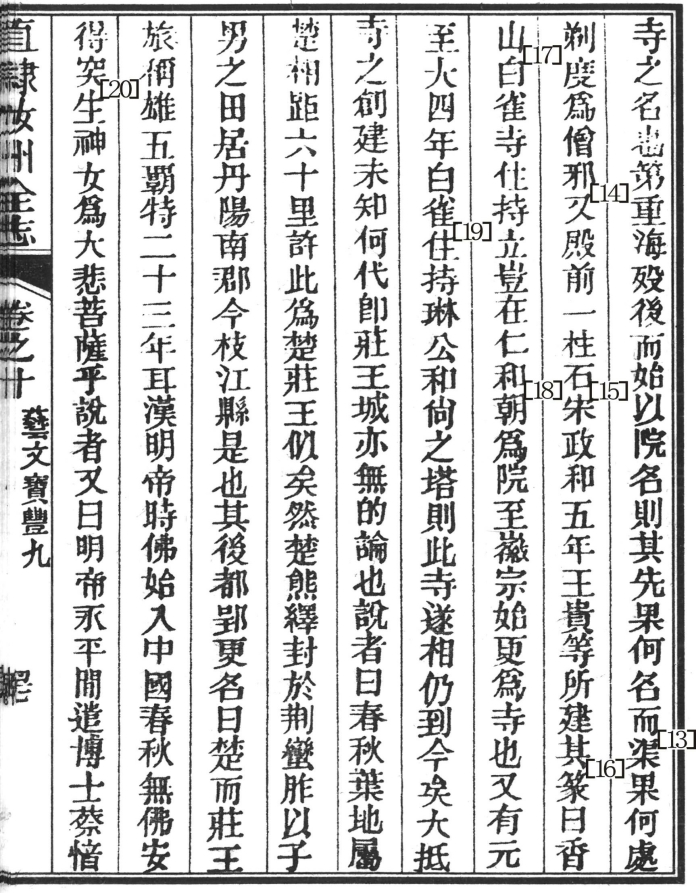 寺之名也第重海歿後而始以院名則其先果何名而渠果何處
[13]
剃度爲僧邪又殿前一柱石宋政和五年王貴等所建其篆曰香
[14]
[15]
[16]
山白雀寺住持立豈在仁和朝爲院至徽宗始更爲寺也又有元
[17]
[18]
至大四年白雀住持琳公和尙之塔則此寺遂相仍到今矣大抵
[19]
寺之創建未知何代卽莊王城亦無的論也說者曰春秋葉地屬
楚相距六十里許此爲楚莊王似矣然楚熊繹封於荆蠻胙以子
男之田居丹陽南郡今枝江縣是也其後都郢更名曰楚而莊王
旅稱雄五霸特二十三年耳漢明帝時佛始入中國春秋無佛安
[20]
得突生神女爲大悲菩薩乎說者又曰明帝永平間遣博士蔡愔
直隸汝州全志
卷之十
藝文寶豐九